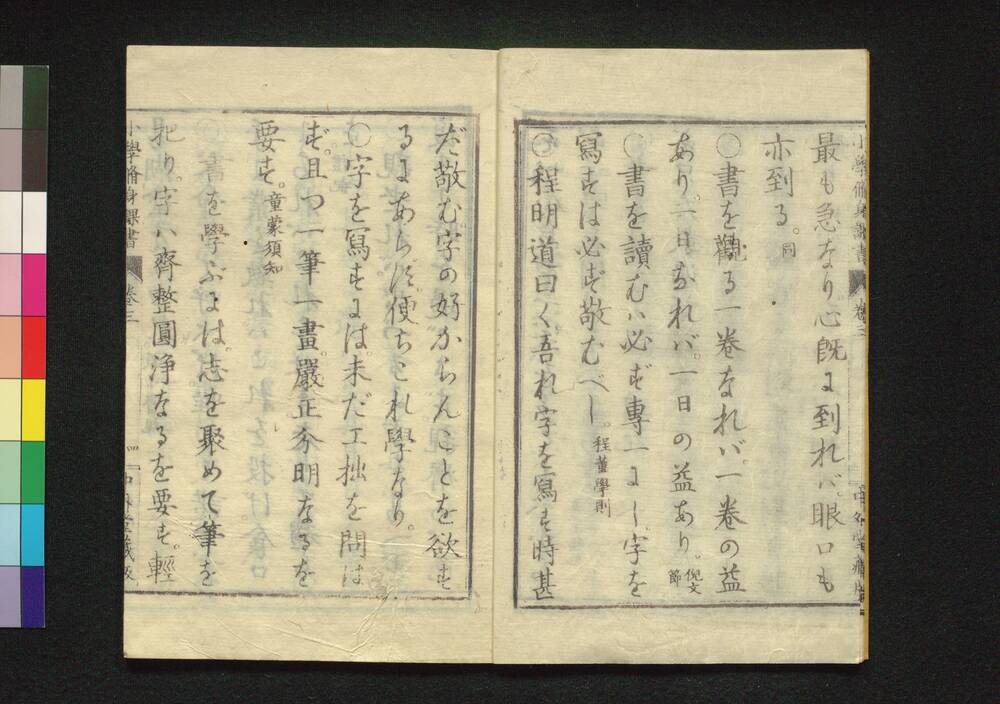 小學脩身課書 卷三
最も急なり心既に到れバ。眼口も
亦到る。同
〇書を觀る一卷なれバ。一卷の益
あり。一日なれバ。一日の益あり。倪文節
〇書を讀むハ必ず專一にし。字を
寫すは必ず敬むべし。程董學則
〇程明道曰く。吾れ字を寫す時甚
だ敬む字の好からんことを欲す
るにあらず。便ちこれ學なり。
〇字を寫すには。未だ工拙を問は
ず。且つ一筆一畫。嚴正分明なるを
要す。童蒙須知
〇書を學ぶには。志を聚めて筆を
把り。字ハ齊整圓淨なるを要す。輕
小學脩身課書 卷三